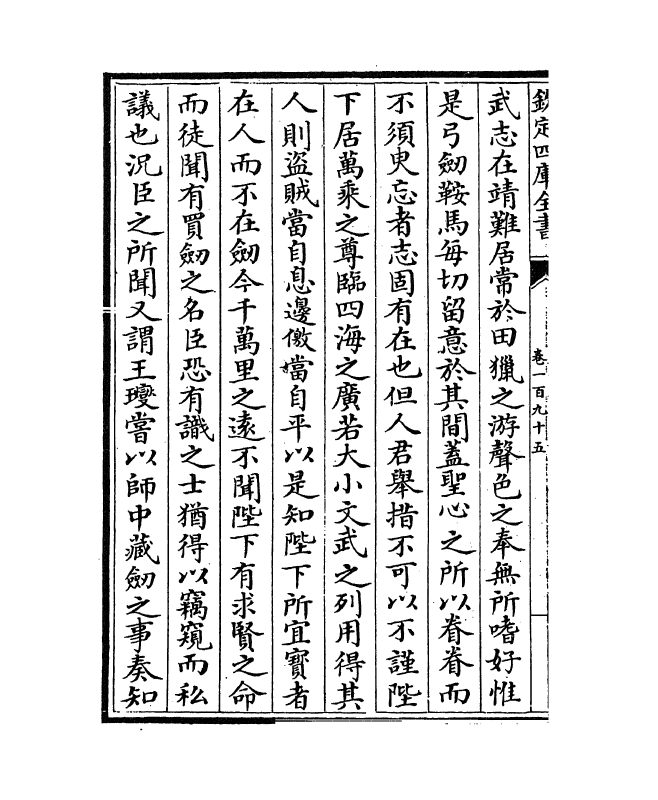 欽定四庫全書
卷一百九十五
武志在靖難居常於田獵之游聲色之奉無所嗜好惟
是弓劒鞍馬每切留意於其間蓋聖心之所以眷眷而
不須臾忘者志固有在也但人君舉措不可以不謹陛
下居萬乘之尊臨四海之廣若大小文武之列用得其
人則盜賊當自息邊儆當自平以是知陛下所宜寶者
在人而不在劒今千萬里之遠不聞陛下有求賢之命
而徒聞有買劒之名臣恐有識之士猶得以竊窺而私
議也況臣之所聞又謂王㺬嘗以師中藏劒之事奏知